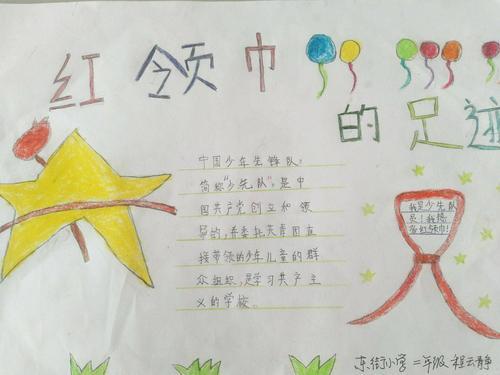 红领巾
的足迹
中国少年先锋队:
简称"少先队",是中
国共产党创立和领
导的,并委托共青团直
接带领的少年儿童的群
众组织,是学习共产主
义的学校。
我是少先队
员!我接
红领巾!
东街小学 二年级 程云静